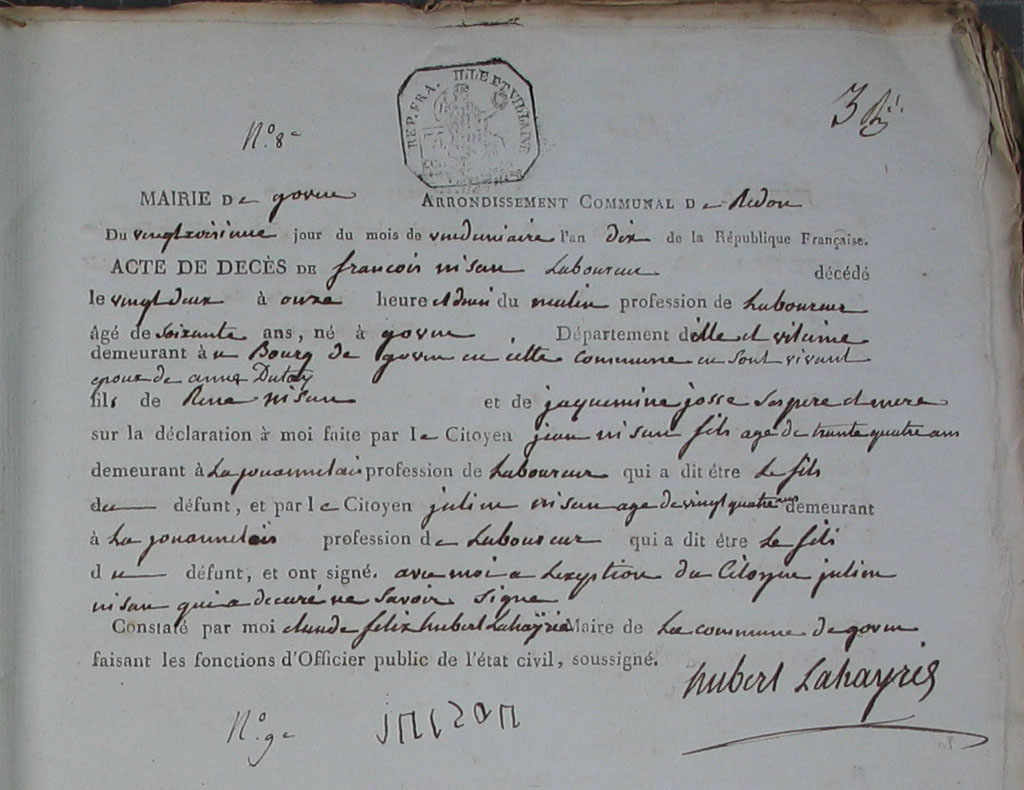 REP. FRA. ILLE ET VILLAINE
3
N.º 8
MAIRIE De goven ARRONDISSEMENT COMMUNAL De Redon
Du vingt jour du mois de vendemiaire l'an dix de la République Française.
ACTE DE DECÈS DE francois nisan Laboureur décédé
le vingt deux à onze heure et demi du matin profession de Laboureur
âgé de soixante ans, né à goven Département dille et vilaine
demeurant à u Bourg de goven en cette commune en sont vivant
epoux de anne Dutay
fils de Rene nisan et de jaquemine josse ses pere et mere
sur la déclaration à moi faite par le Citoyen jean nisan fils age de trante quatre ans
demeurant à La jouannelais profession de Laboureur qui a dit être Le fils
du défunt, et par le Citoyen julien nisan age de vingt quatre ans demeurant
à La jouannelais profession de Laboureur qui a dit être Le fils
du défunt, et ont signé. avec moi a Lexeption du Citoyen julien
nisan qui a decuré ne savoir signe
Constaté par moi claude felix hubert Lahaÿrie Maire de La commune de goven
faisant les fonctions d'Officier public de l'état civil, soussigné.
hubert Lahayris
N.º 9 jnisan